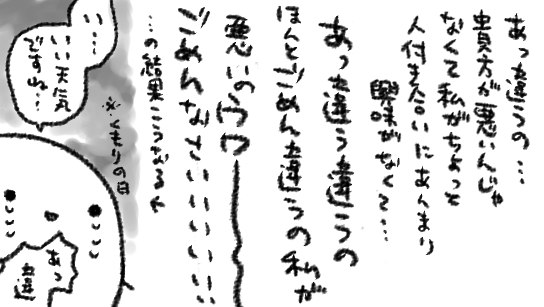 あっ違うの…
貴方が悪いんじゃ
なくて私がちょっと
人付き合いにあんまり
興味がなくて…
あっ違う違うの
ほんとごめん違うの私が
悪いのﾜｧー
ごめんなさいいいいい
…の結果こうなるや
※くもりの日
い…
いい天気
ですね…
あっ
違